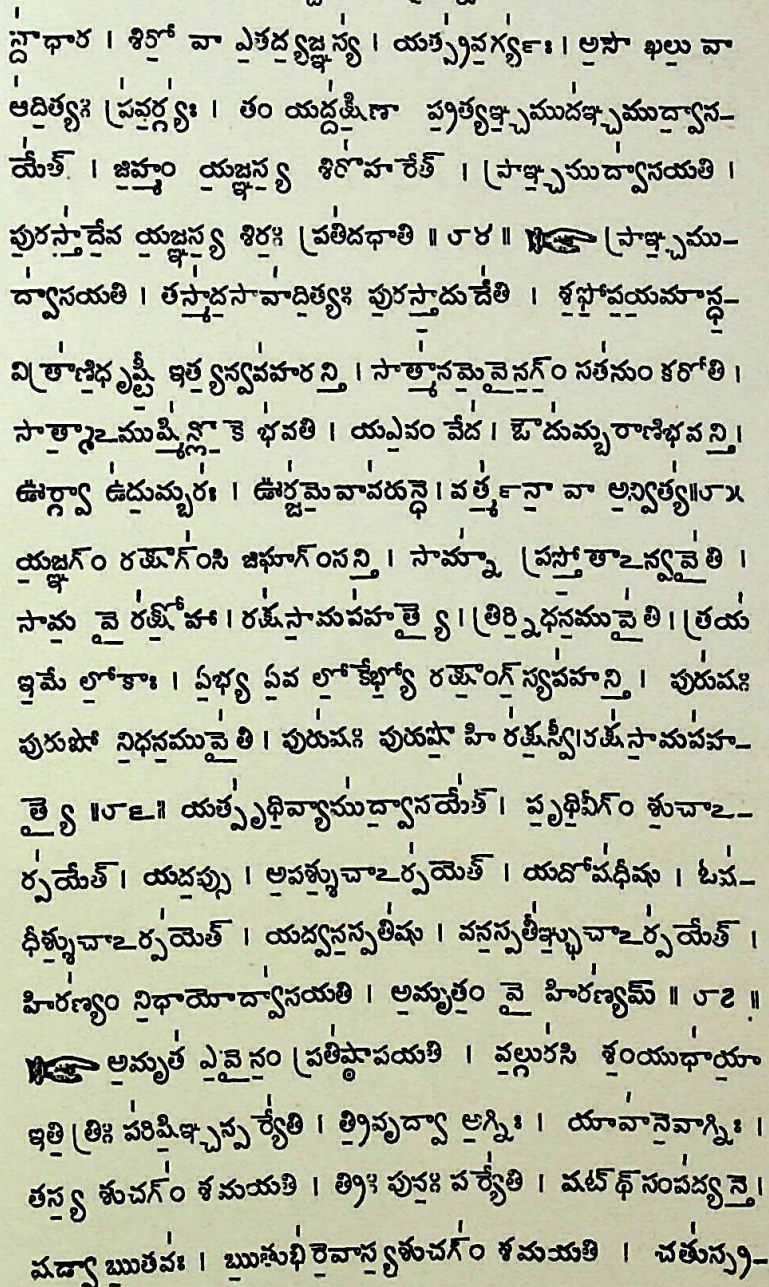 న్దాధార । శిరో వా ఎతద్యజ్ఞస్య । యత్ప్రవగ్య౯ః । అసౌ ఖలు వా
ఆదిత్యః ప్రవర్గ్యః । తం యద్దక్షిణా ప్రత్యఞ్చముదఞ్చముద్వాస-
యేత్ । జిహ్మం యజ్ఞస్య శిరోహరేత్ । ప్రాఞ్చముద్వాసయతి ।
పురస్తాదేవ యజ్ఞస్య శిరః ప్రతిదధాతి ॥ ౧౪ ॥ ☞ ప్రాఞ్చము-
ద్వాసయతి । తస్మాదసావాదిత్యః పురస్తాదుదేతి । శఫోపయమాన్ధ-
విత్రాణిధృష్టీ ఇత్యన్వవహరన్తి । సాత్మానమెవైనగ్ం సతనుం కరోతి ।
సాత్మాఽముష్మిన్లొకె భవతి । యఎవం వేద । ఔదుమ్బరాణిభవన్తి।
ఊర్గ్వా ఉదుమ్బరః । ఊర్జమెవావరున్ధె। వర్త్మ౯నా వా అన్విత్య॥౧౫
యజ్ఞగ్ం రక్షాగ్ంసి జిఘాగ్ంసన్తి । సామ్నా ప్రస్తోతాఽన్వవైతి ।
సామ వై రక్షోహా । రక్షసామపహత్యై । త్రిర్నిధనముపైతి । త్రయ
ఇమే లోకాః । ఏభ్య ఏవ లోకేభ్యో రక్షాంగ్ స్యపహన్తి । పురుషః
పురుషో నిధనముపైతి । పురుషః పురుషో హి రక్షస్వీ।రక్షసామపహ-
త్యై ॥౧౬॥ యత్పృథివ్యాముద్వాసయేత్ । పృథివీగ్ం శుచాఽ-
ర్పయేత్ । యదప్సు । అపశ్శుచాఽర్పయెత్ । యదోషధీషు । ఓష-
ధీశ్శుచాఽర్పయెత్ । యద్వనస్పతిషు । వనస్పతీఞ్ఛుచాఽర్పయేత్ ।
హిరణ్యం నిధాయోద్వాసయతి । అమృతం వై హిరణ్యమ్ ॥ ౧౭ ॥
☞ అమృత ఎవైనం ప్రతిష్ఠాపయతి । వల్గురసి శంయుధాయా
ఇతి త్రిః పరిషిఞ్చన్పర్యేతి । త్రివృద్వా అగ్నిః । యావానెవాగ్నిః ।
తస్య శుచగ్ం శమయతి । త్రిః పునః పర్యేతి । షట్థ్సంపద్యన్తె ।
షడ్వా ఋతవః । ఋతుభిరెవాస్యశుచగ్ం శమయతి । చతుస్స్ర-